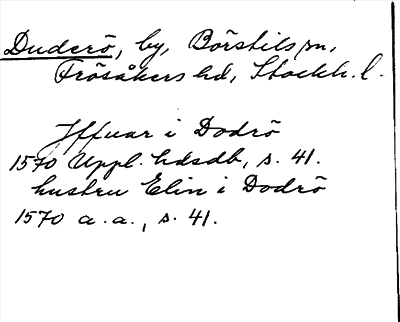 Duderö, by, Börstils sn,
Frösåkers hd, Stockh. l.
Iffuar i Dodrö
1570 Uppl. hdsdb, s. 41.
hustru Elin i Dodrö
1570 a.a., s. 41.